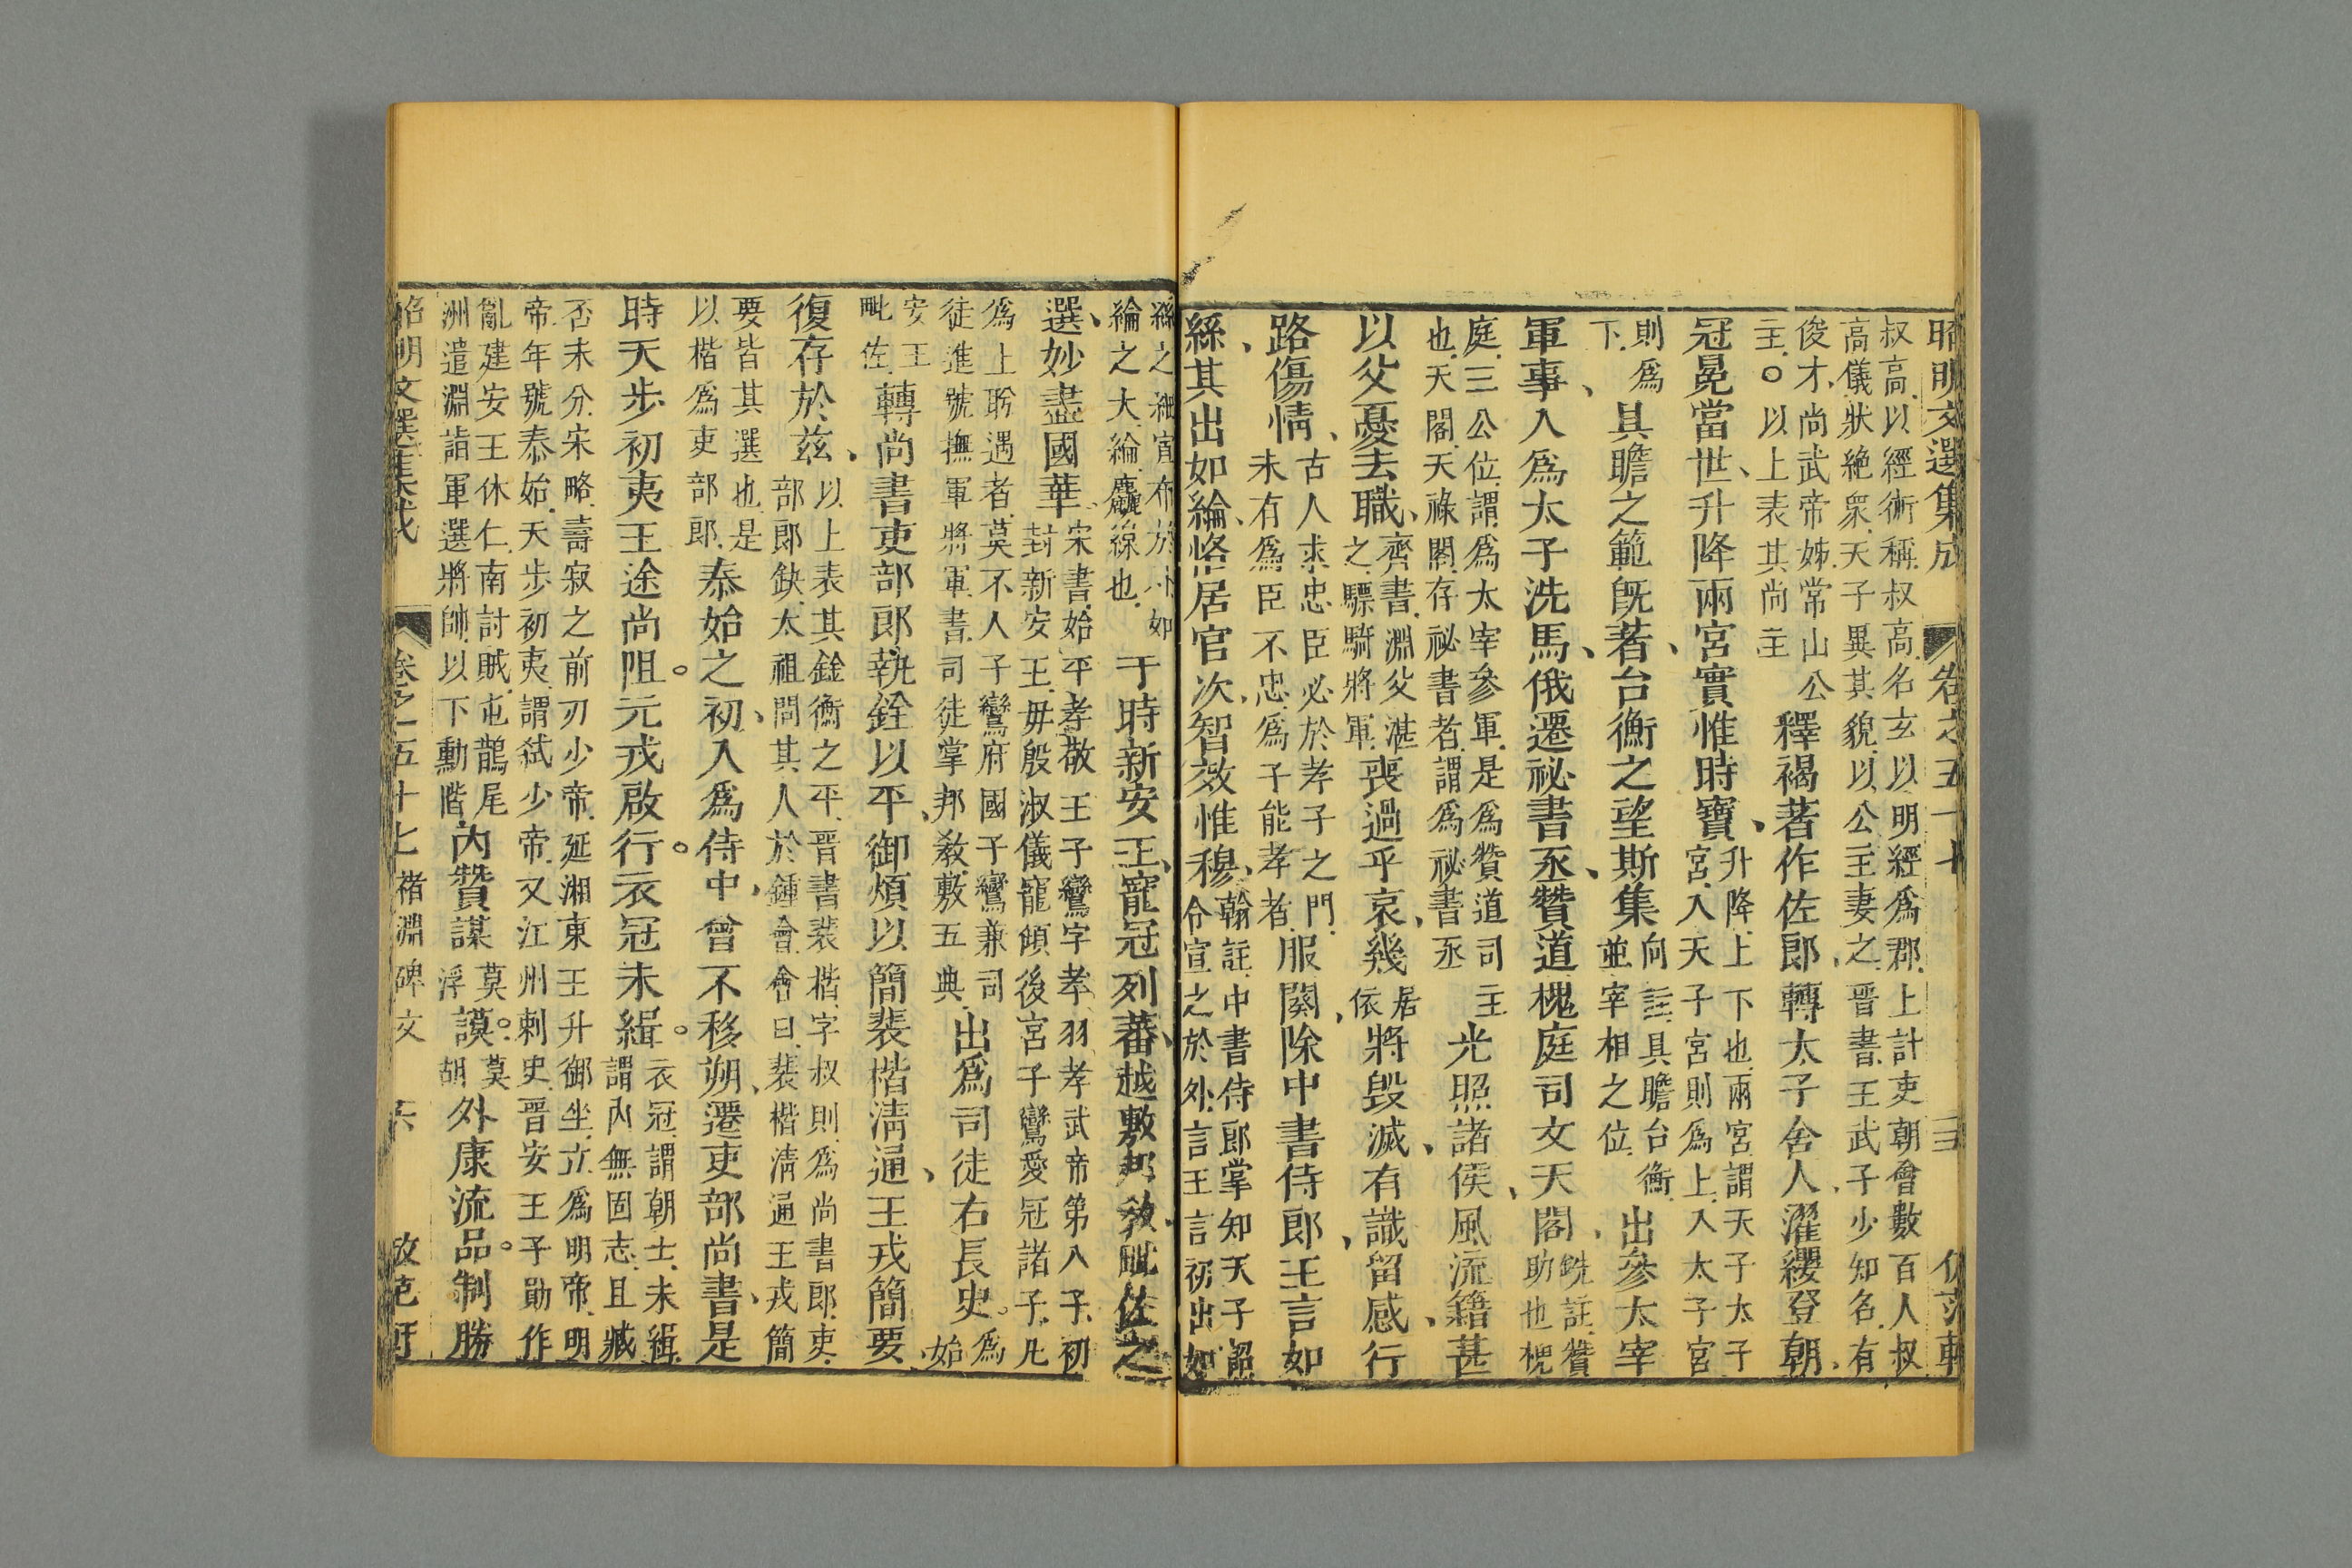 昭明文選集成 卷之五十七
叔高以經術稱叔高名玄以明經爲郡上計吏朝會數百人叔
高儀狀絶衆天子異其貌以公主妻之晉書王武子少知名有
俊才尚武帝姊常山公
主○以上表其尚主
釋褐著作佐郎轉太子舍人濯纓登朝
冠冕當世升降兩宮實惟時寶
升降上下也兩宮謂天子太子
宮入天子宮則爲上入太子宮
則爲
下
具瞻之範旣著台衡之望斯集
向註具瞻台衡
並宰相之位
出參太宰
軍事入爲太子洗馬俄遷祕書丞贊道槐庭司文天閣
銑註贊
助也槐
庭三公位謂爲太宰參軍是爲贊道司
也天閣天祿閣存祕書者謂爲祕書丞
主
光照諸侯風流籍甚
以父憂去職
齊書淵父湛
之驃騎將軍
喪過乎哀幾
居
依
將毀滅有識留感行
路傷情
古人求忠臣必於孝子之門
未有爲臣不忠爲子能孝者
服闋除中書侍郎王言如
絲其出如綸恪居官次智效惟穆
翰註中書侍郎掌知天子詔
令宣之於外言王言初出如
絲之細宣布於外如
綸之大綸麤線也
于時新安王寵冠列蕃越敷邦敎毗佐之
選妙盡國華
宋書始平孝敬王子鸞字孝羽孝武帝第八子初
封新安王毋殷淑儀寵傾後宮子鸞愛冠諸子凡
爲上聁遇者莫不人子鸞府國子鸞兼司
徒進號撫軍將軍書司徒掌邦敎敷五典
出爲司徒右長史
爲
始
安王
毗佐
轉尚書吏部郎執銓以平御煩以簡裴楷淸通王戎簡要
復存於茲
以上表其銓衡之平晉書裴楷字叔則爲尚書郎吏
部郎缺太祖問其人於鍾會會曰裴楷淸通王戎簡
要皆其選也是
以楷爲吏部郎
泰始之初入爲侍中曾不移朔遷吏部尚書是
時天步初夷王途尚阻元戎啟行衣冠未緝
衣冠謂朝士未緝
謂內無固志且臧
否未分宋略壽寂之前刃少帝延湘東王升御坐立爲明帝明
帝年號泰始天步初夷謂弒少帝帝又江州刺史晉安王子勛作
亂建安王休仁南討賊屯鵲尾
洲遣淵詣軍選將帥以下勳階
內贊謀
莫
浮
謨
莫
胡
外康流品制勝
昭明文選集成 卷之五十七 褚淵碑文